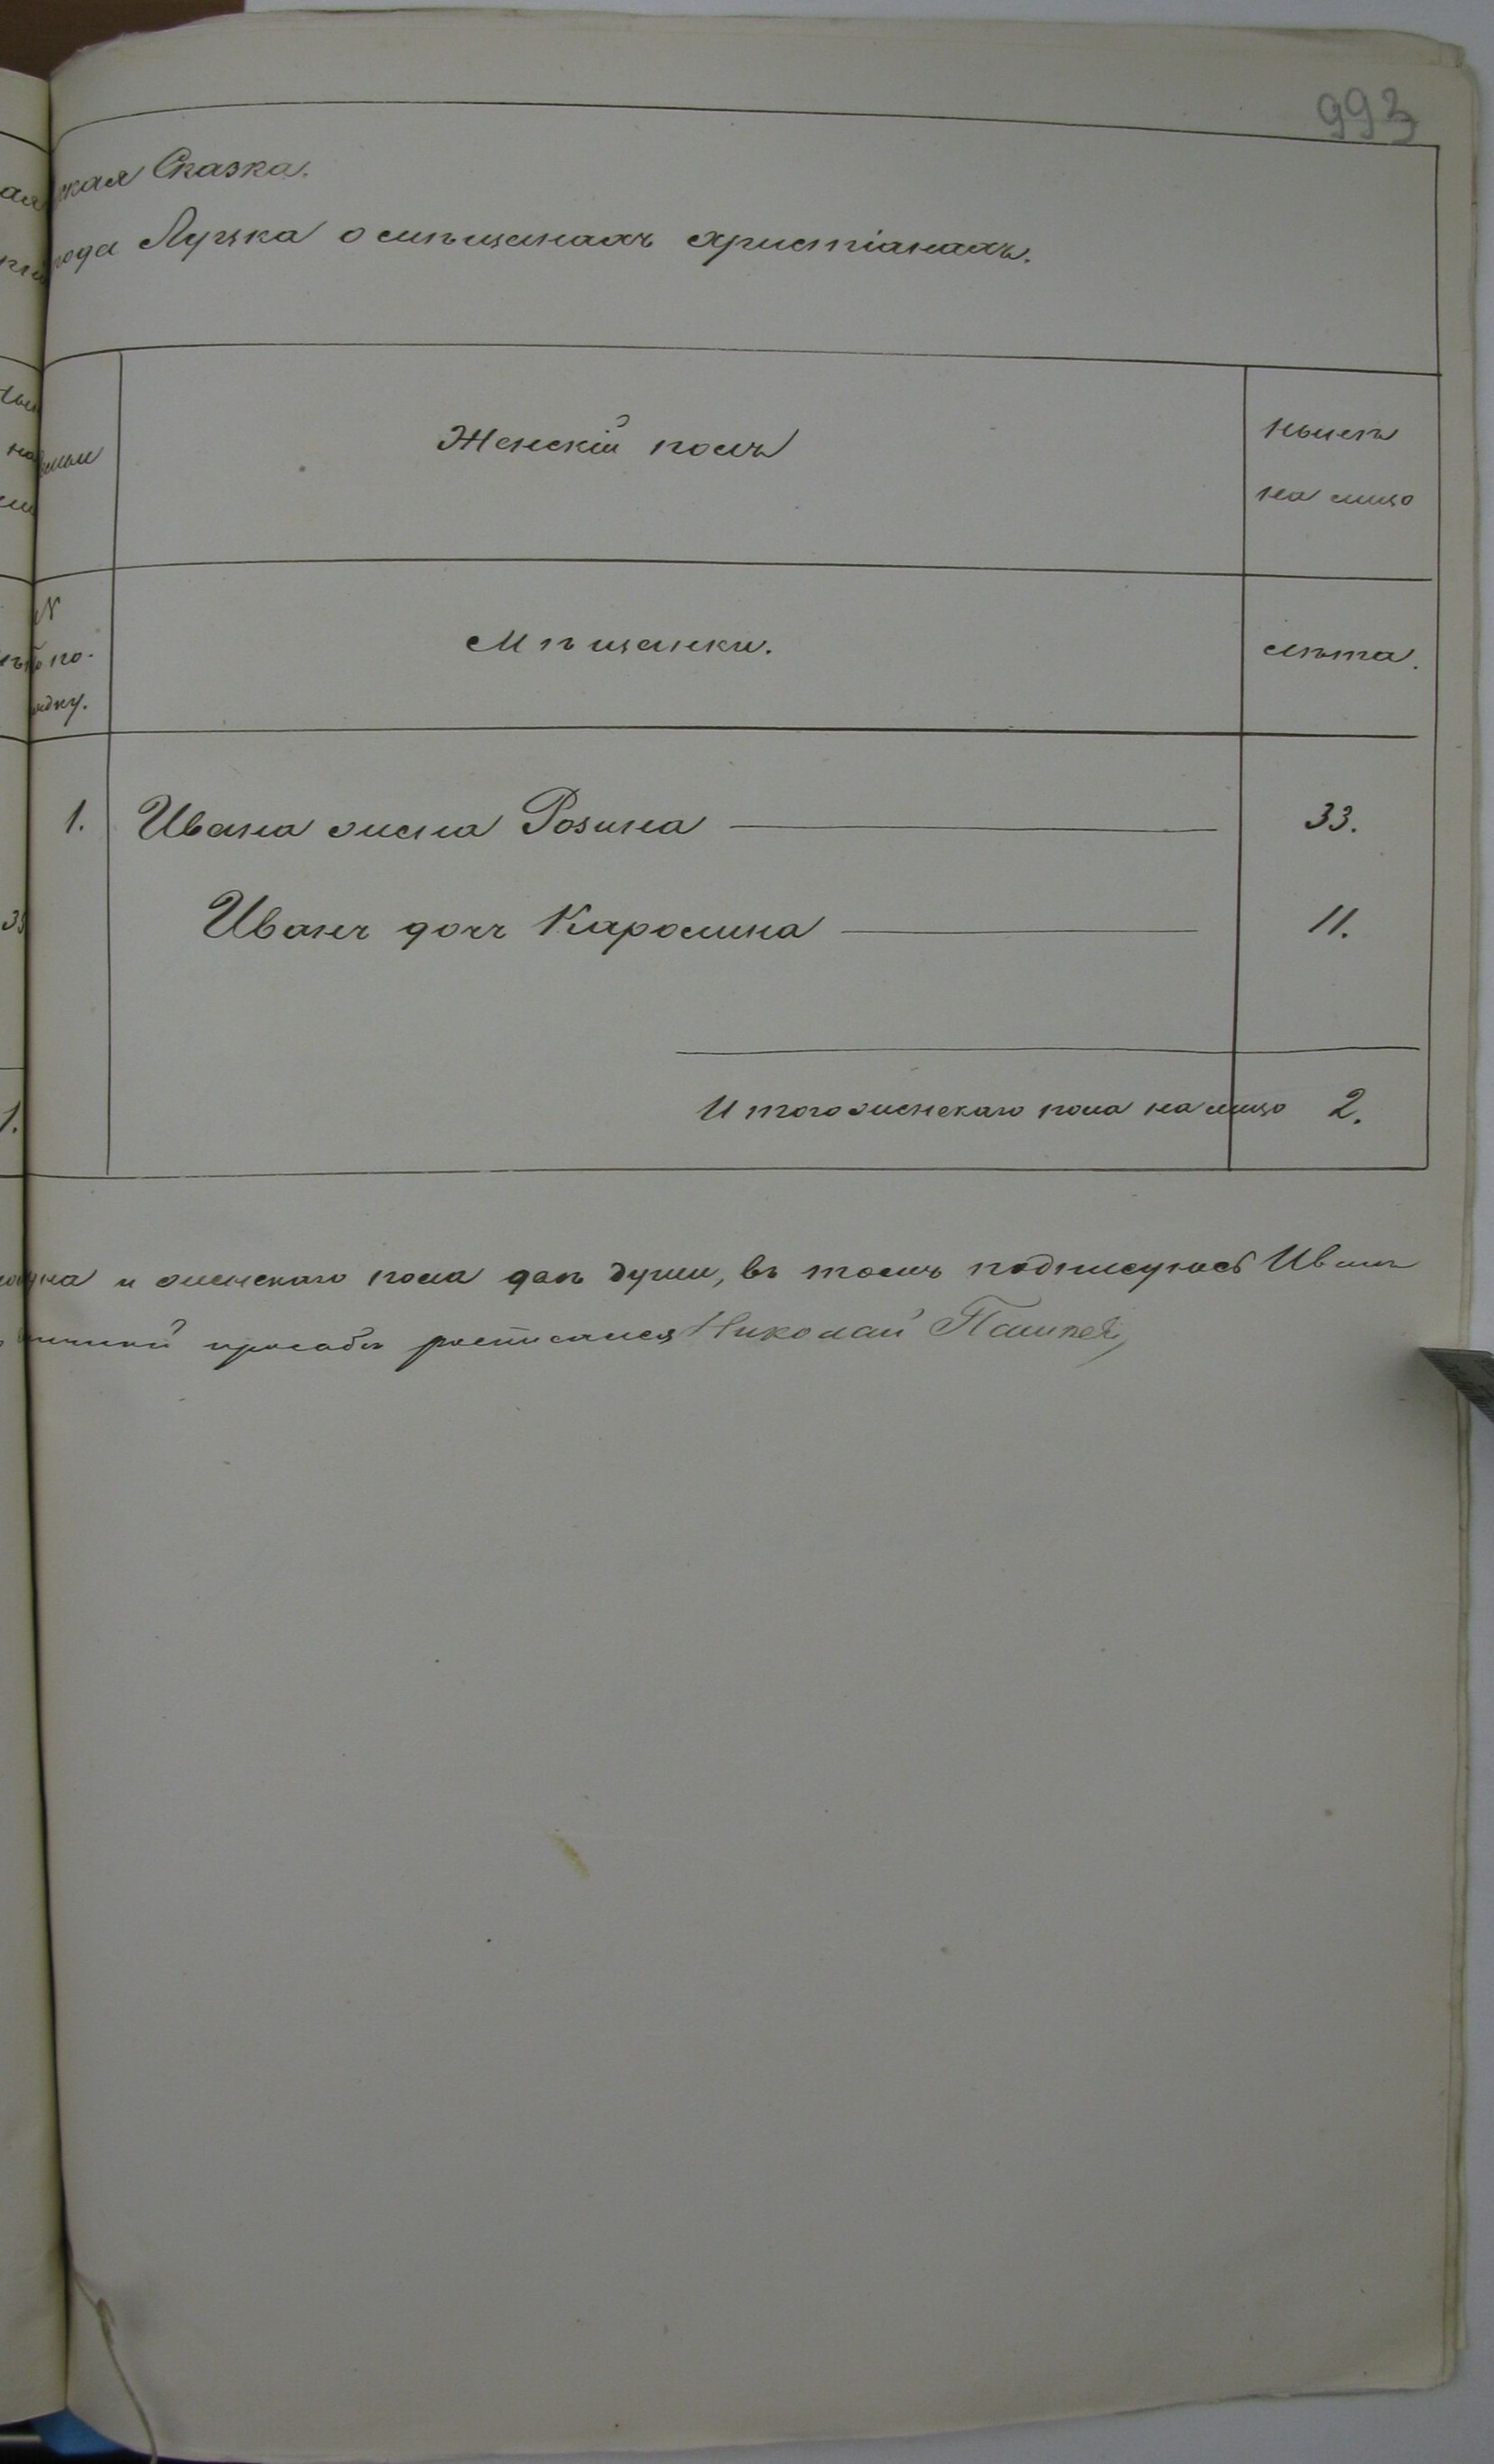 993
ская Сказка.
рода Луцка о мѣщанахъ христіанахъ.
Женскій полъ
нынѣ
на лицо
N
по по-
рядку.
Мѣщанки.
лѣта.
1. Ивана жена Розина 33.
Иванъ дочь Каролина 11.
Итого женскаго пола на лицо 2.
и женскаго пола двѣ души, въ томъ подписуюсь Иванъ
просьбѣ росписался Николай